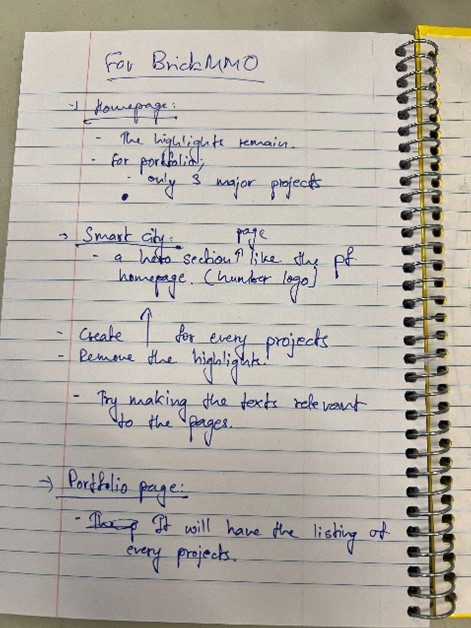 For BrickMMO
→ Homepage:
- The highlights remain.
- For portfolio,
- only 3 major projects
→ Smart city: page
- a hero section ↑ like the pf
homepage. (humber logo)
- Create ↑ for every projects
- Remove the highlights.
- Try making the texts relevant
to the pages.
→ Portfolio page:
- It will have the listing of
every projects.